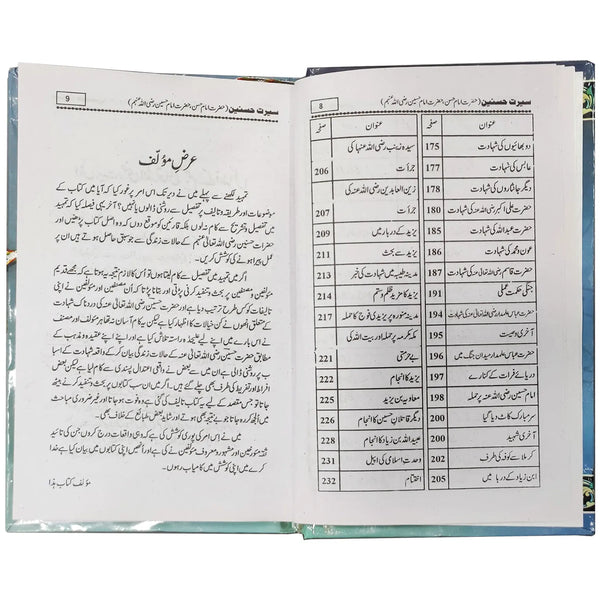 سیرت حسنین (حضرت امام حسن، حضرت امام حسین رضی اللہ عنہم) 8
عنوان صفحہ
دو بھائیوں کی شہادت 175
عابس کی شہادت 177
دیگر جانثاروں کی شہادت 178
حضرت علی اکبر رضی اللہ عنہ کی شہادت 180
حضرت عبداللہ کی شہادت 183
عون و محمد کی شہادت 186
حضرت قاسم رضی اللہ تعالیٰ عنہ کی شہادت 187
جنگی حکمت عملی 191
حضرت عباس علمدار رضی اللہ تعالیٰ عنہ کی شہادت 194
آخری وصیت 195
حضرت عباس علمدار میدان جنگ میں 196
دریائے فرات کے کنارے 197
امام حسین رضی اللہ عنہ پر حملہ 198
سر مبارک کاٹ دیا گیا 200
آخری شہید 200
کربلا سے کوفہ کی طرف 202
ابن زیاد کے دربار میں 205
عنوان صفحہ
سیدہ زینب رضی اللہ عنہا کی
جرأت 206
زین العابدین رضی اللہ عنہ کی
جرأت 207
یزید کے دربار میں 209
یزید سے بحث 211
مدینہ طیبہ میں شہادت کی خبر 213
یزید کا مزید ظلم و ستم 214
مدینہ منورہ پر یزیدی فوج کا حملہ 217
مکہ مکرمہ پر حملہ اور بیت اللہ کی
بے حرمتی 221
یزید کا انجام 222
معاویہ بن یزید 225
عبیداللہ بن زیاد کا انجام 225
دیگر قاتلانِ حسین کا انجام 226
وحدت اسلامی کی اپیل 231
اختتام 232
سیرت حسنین (حضرت امام حسن، حضرت امام حسین رضی اللہ عنہم) 9
عرضِ مؤلف
تمہید لکھنے سے پہلے میں نے دیر تک اس امر پر غور کیا کہ آیا میں کتاب کے
موضوعات اور طریقہ تالیف پر تفصیل سے روشنی ڈالوں یا نہیں؟ آخر یہی فیصلہ کیا کہ تمہید
میں تفصیل و تشریح سے کام نہ لوں بلکہ قارئین کو موقع دوں کہ وہ اصل کتاب پڑھیں اور
حضرات حسنین رضی اللہ تعالیٰ عنہم کے حالات زندگی سے جو سبق حاصل ہوتے ہیں ان پر
عمل پیرا ہونے کی کوشش کریں۔
اگر میں تمہید میں تفصیل سے کام لیتا ہوں تو اس کا لازم نتیجہ یہ ہوتا ہے کہ مجھے قدیم
مؤلفین و مصنفین پر بحث و تنقید کرنی پڑتی اور بتانا پڑتا کہ اُن مصنفین اور مؤلفین نے اپنی
تالیفات کو کس طرح ترتیب دیا ہے اور حضرت حسین رضی اللہ تعالیٰ عنہ کی دردناک شہادت
کے متعلق انھوں نے کن خیالات کا اظہار کیا ہے یہ کام آسان نہ تھا ہر مؤلف اور مصنف
نے اس بارے میں اپنے لیے علیحدہ راستہ اختیار کیا ہے اور اپنے اپنے عقیدہ و مذہب کے
مطابق حضرت حسین رضی اللہ تعالیٰ عنہ کے حالات زندگی بیان کر کے واقعہ شہادت کے اسباب
پر روشنی ڈالی ہے ان میں سے بعض نے واقعی اعتدال پسندی سے کام لیا ہے لیکن بعض
افراط اور تفریط کی طرف بھی چلے گئے ہیں۔ اگر میں ان سب کتابوں پر بحث و تنقید کرنے بیٹھ
جاتا تو جس مقصد کے لیے یہ کتاب تالیف کی گئی ہے وہ فوت ہو جاتا اور غیر ضروری مباحث
میں اُلجھ کر رہ جاتا جو بے نتیجہ بھی ہوتے اور شاید بعض طبائع کے خلاف بھی۔
میں نے اس امر کی پوری کوشش کی ہے کہ وہی واقعات درج کروں جن کی تائید
ثقہ مؤرخین اور مشہور و معروف مؤلفین نے کی ہے اور انھیں اپنی کتابوں میں بیان کیا ہے خدا
کرے میں اپنی کوشش میں کامیاب رہوں۔
مؤلف کتاب ہذا